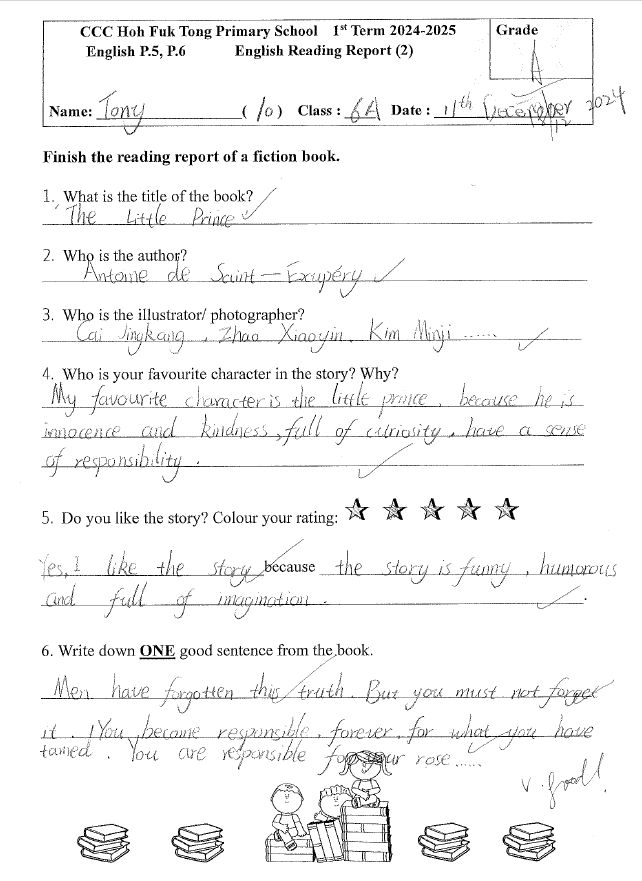 CCC Hoh Fuk Tong Primary School 1st Term 2024-2025
Grade
English P.5, P.6 English Reading Report (2)
A
Name: Tony (10) Class : 6A Date : 11th December 2024
Finish the reading report of a fiction book.
1. What is the title of the book?
The Little Prince
2. Who is the author?
Antoine de Saint-Exupéry
3. Who is the illustrator/ photographer?
Cai Jingkang, Zhao Xiaoyin, Kim Minji ......
4. Who is your favourite character in the story? Why?
My favourite character is the little prince, because he is
innocence and kindness, full of curiosity, have a sense
of responsibility.
5. Do you like the story? Colour your rating:
Yes, I like the story because the story is funny, humorous
and full of imagination.
6. Write down ONE good sentence from the book.
Men have forgotten this truth. But you must not forget
it. You become responsible, forever, for what you have
tamed. You are responsible for your rose......
v. good!